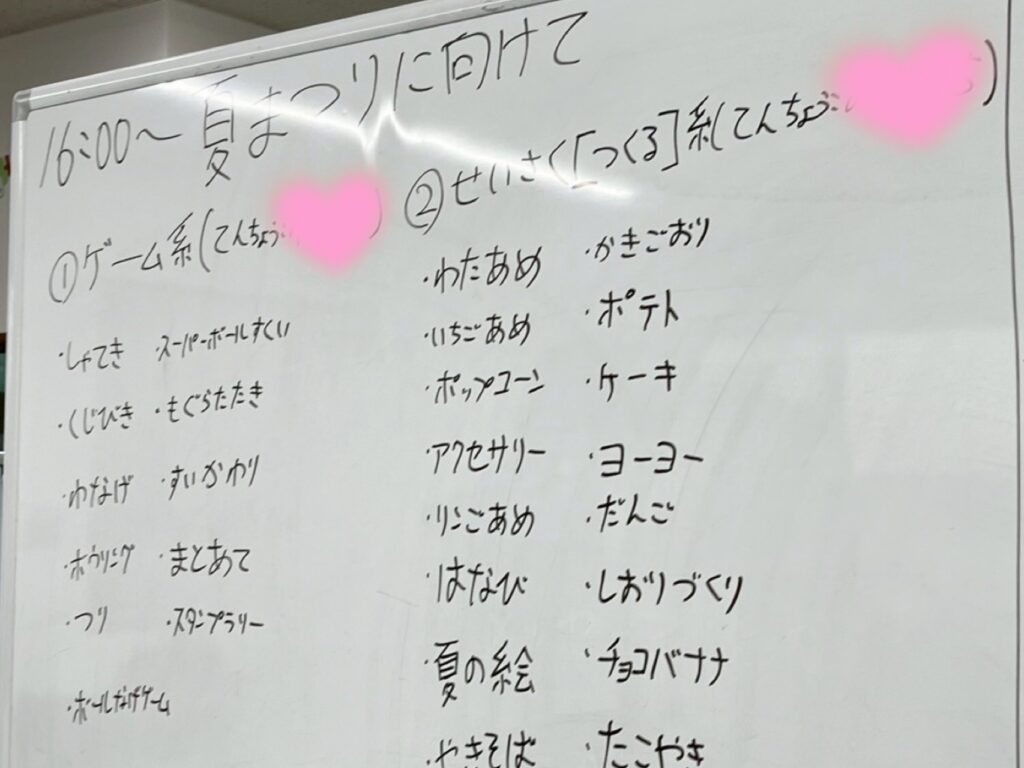 16:00〜夏まつりに向けて
①ゲーム系(てんちょう: )
・しゃてき
・くじびき
・わなげ
・ボウリング
・つり
・ボールなげゲーム
・スーパーボールすくい
・もぐらたたき
・すいかわり
・まとあて
・スタンプラリー
②せいさく[つくる]系(てんちょう: )
・わたあめ
・いちごあめ
・ポップコーン
・アクセサリー
・リンごあめ
・はなび
・夏の絵
・やきそば
・かきごおり
・ポテト
・ケーキ
・ヨーヨー
・だんご
・しおりづくり
・チョコバナナ
・たこやき